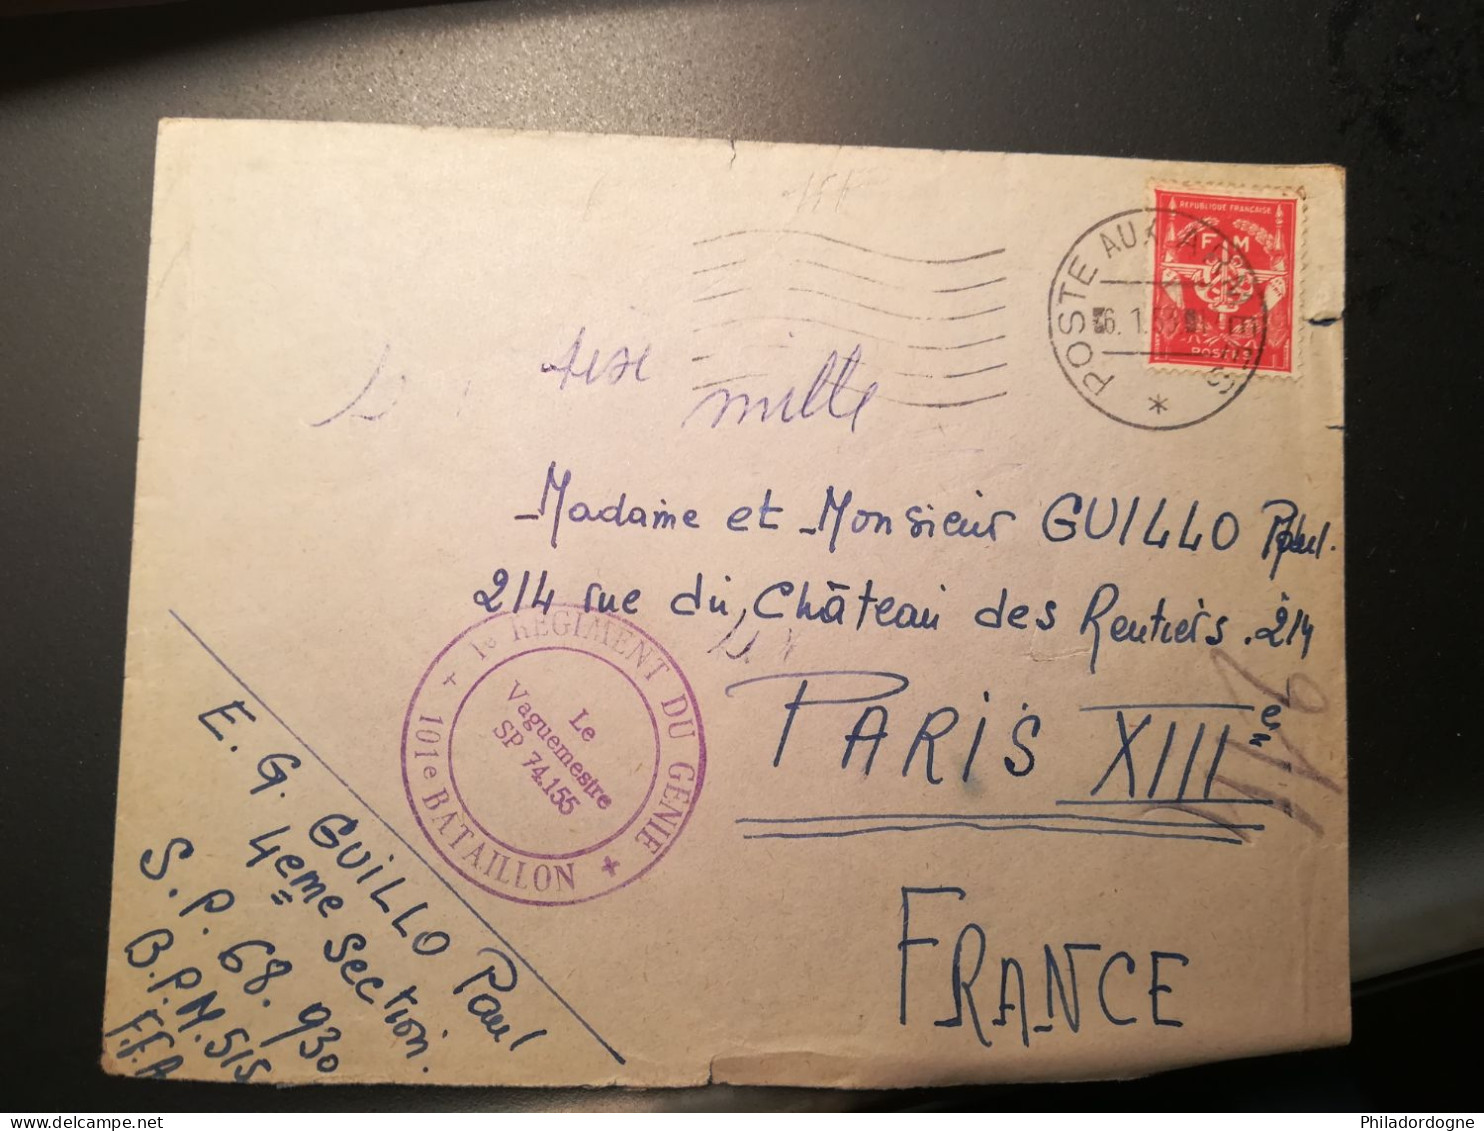 REPUBLIQUE FRANÇAISE
F M
POSTES
POSTE AUX ARMEES
*
mille
Madame et Monsieur GUILLO Paul.
214 rue du Château des Rentiers. 214
PARIS XIIIe
FRANCE
1e REGIMENT DU GENIE
101e BATAILLON
Le
Vaguemestre
SP 74.155
E. G. GUILLO Paul
4eme Section.
S.P. 68.930
B.P.M. 515
F.F.A
Philadordogne